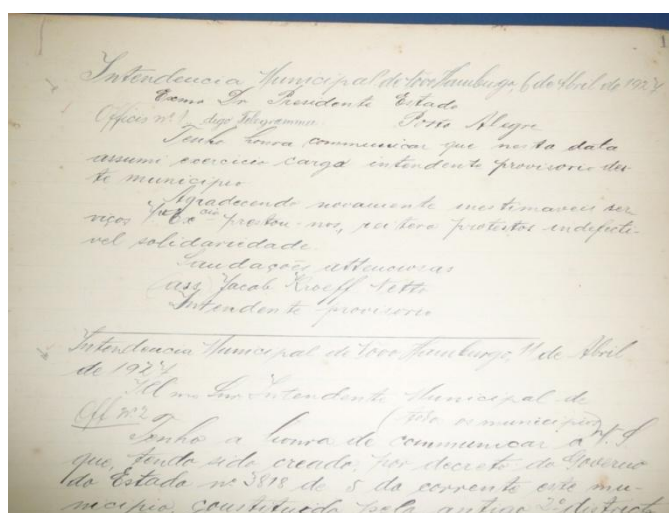 Intendencia Municipal de Novo Hamburgo, 6 de Abril de 1927
Exmo Dr. Presidente Estado
Officio nº 1 digo Telegramma Porto Alegre
Tenho honra communicar que nesta data
assumi exercicio cargo intendente provisorio des-
te municipio
Agradecendo novamente inestimaveis ser-
viços V. Exᶜⁱᵃ prestou-nos, reitero protestos indefecti-
vel solidariedade.
Saudações attenciosas
(ass) Jacob Kroeff Netto
Intendente provisorio
Intendencia Municipal de Novo Hamburgo, 11 de Abril
de 1927
Illmo Snr Intendente Municipal de
Off. nº 2 (todos os municipios)
Tenho a honra de communicar a V. S.
que, tendo sido creado, por decreto do Governo
do Estado nº 3818 de 5 do corrente este mu-
nicipio, constituido pelo antigo 2º districto